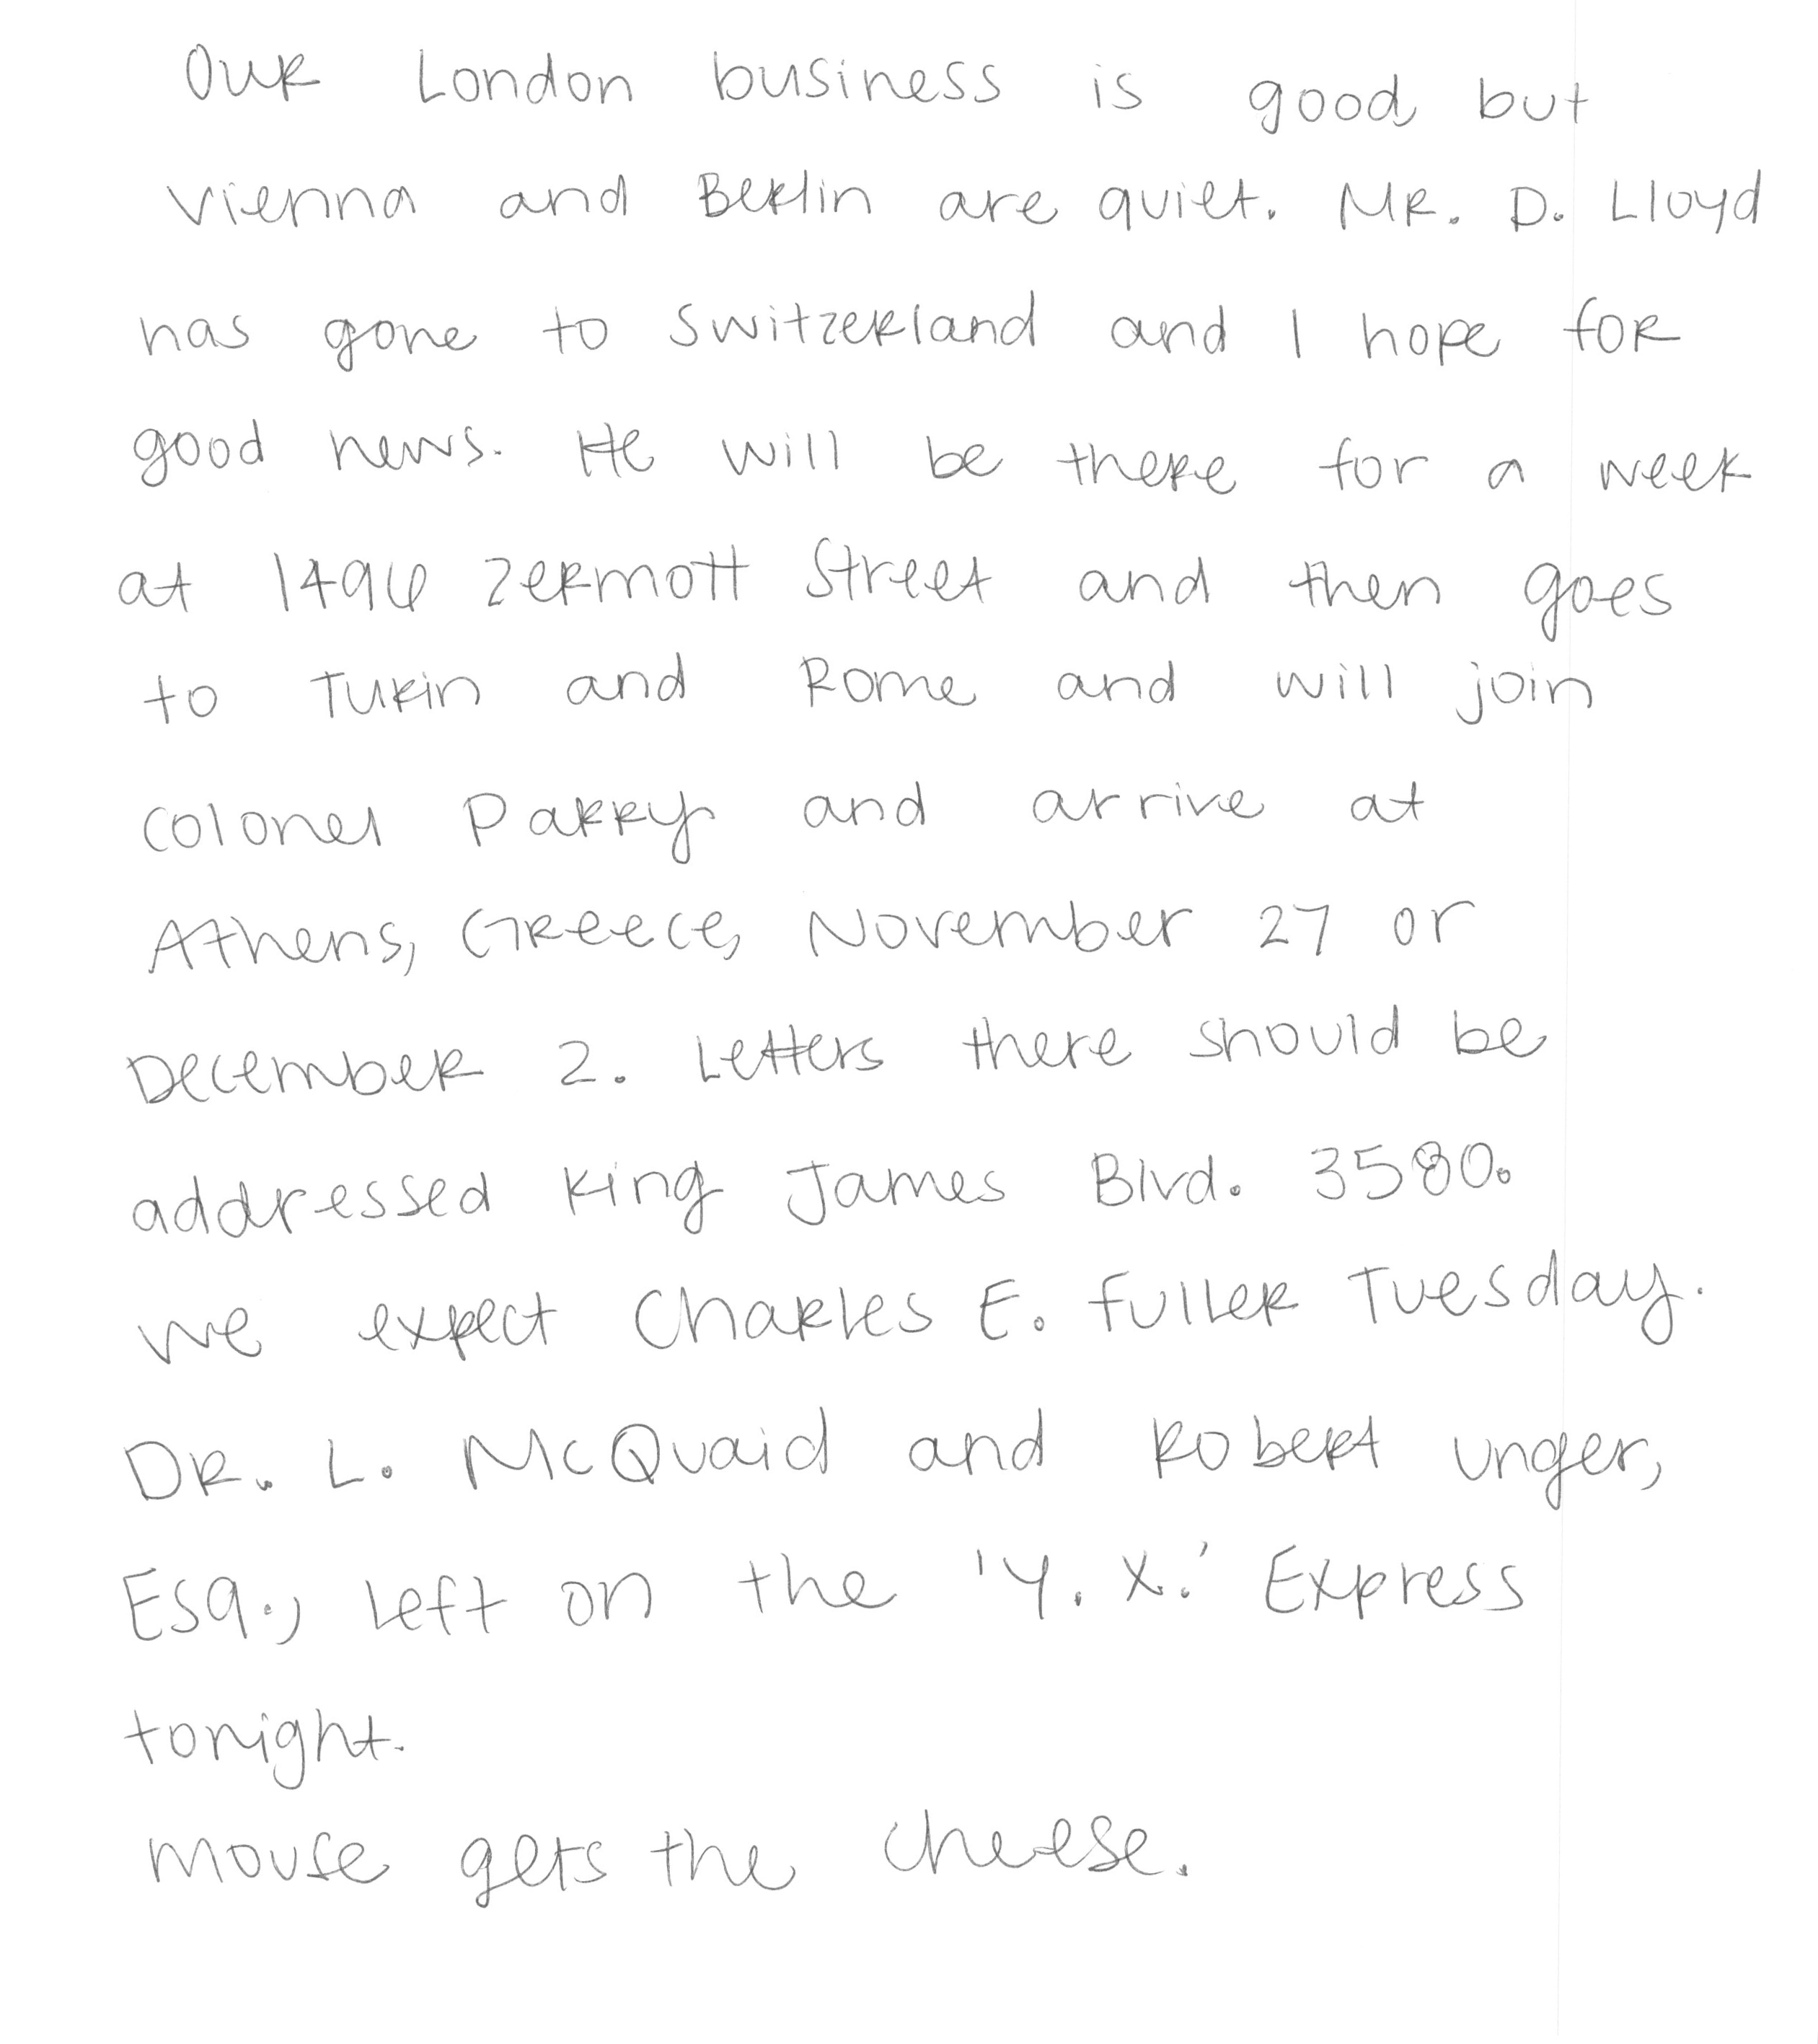 Our London business is good, but
Vienna and Berlin are quiet. Mr. D. Lloyd
has gone to Switzerland and I hope for
good news. He will be there for a week
at 1496 Zermott Street and then goes
to Turin and Rome and will join
Colonel Parry and arrive at
Athens, Greece, November 27 or
December 2. Letters there should be
addressed King James Blvd. 3580.
We expect Charles E. Fuller Tuesday.
Dr. L. McQuaid and Robert Unger,
Esq., left on the 'Y. X.' Express
tonight.
Mouse gets the cheese.